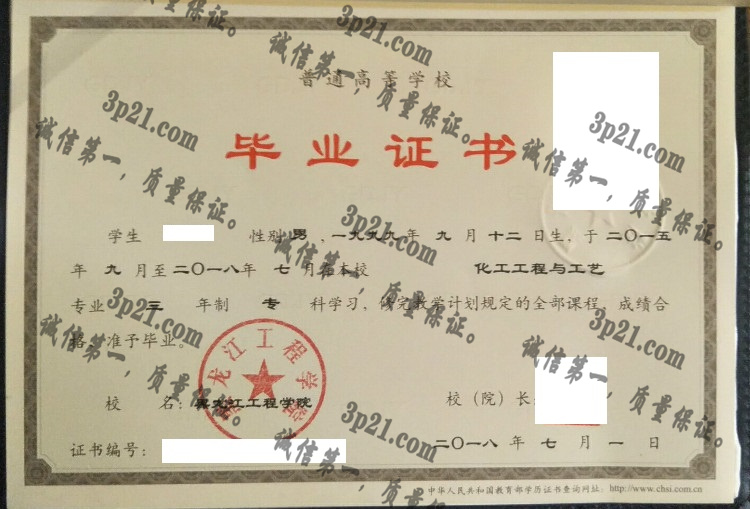 普通高等学校
毕业证书
学生 性别 男，一九九九年 九 月 十二 日生，于 二〇一五
年 九 月至 二〇一八 年 七 月在本校 化工工程与工艺
专业 三 年制 专 科学习，修完教学计划规定的全部课程，成绩合
格，准予毕业。
黑龙江工程学院
校 名：黑龙江工程学院
校（院）长：
证书编号：
二〇一八 年 七 月 一 日
中华人民共和国教育部学历证书查询网址：http://www.chsi.com.cn
3p21.com
诚信第一，质量保证。
3p21.com
诚信第一，质量保证。
3p21.com
诚信第一，质量保证。
3p21.com
诚信第一，质量保证。
3p21.com
诚信第一，质量保证。
3p21.com
诚信第一，质量保证。
3p21.com
诚信第一，质量保证。